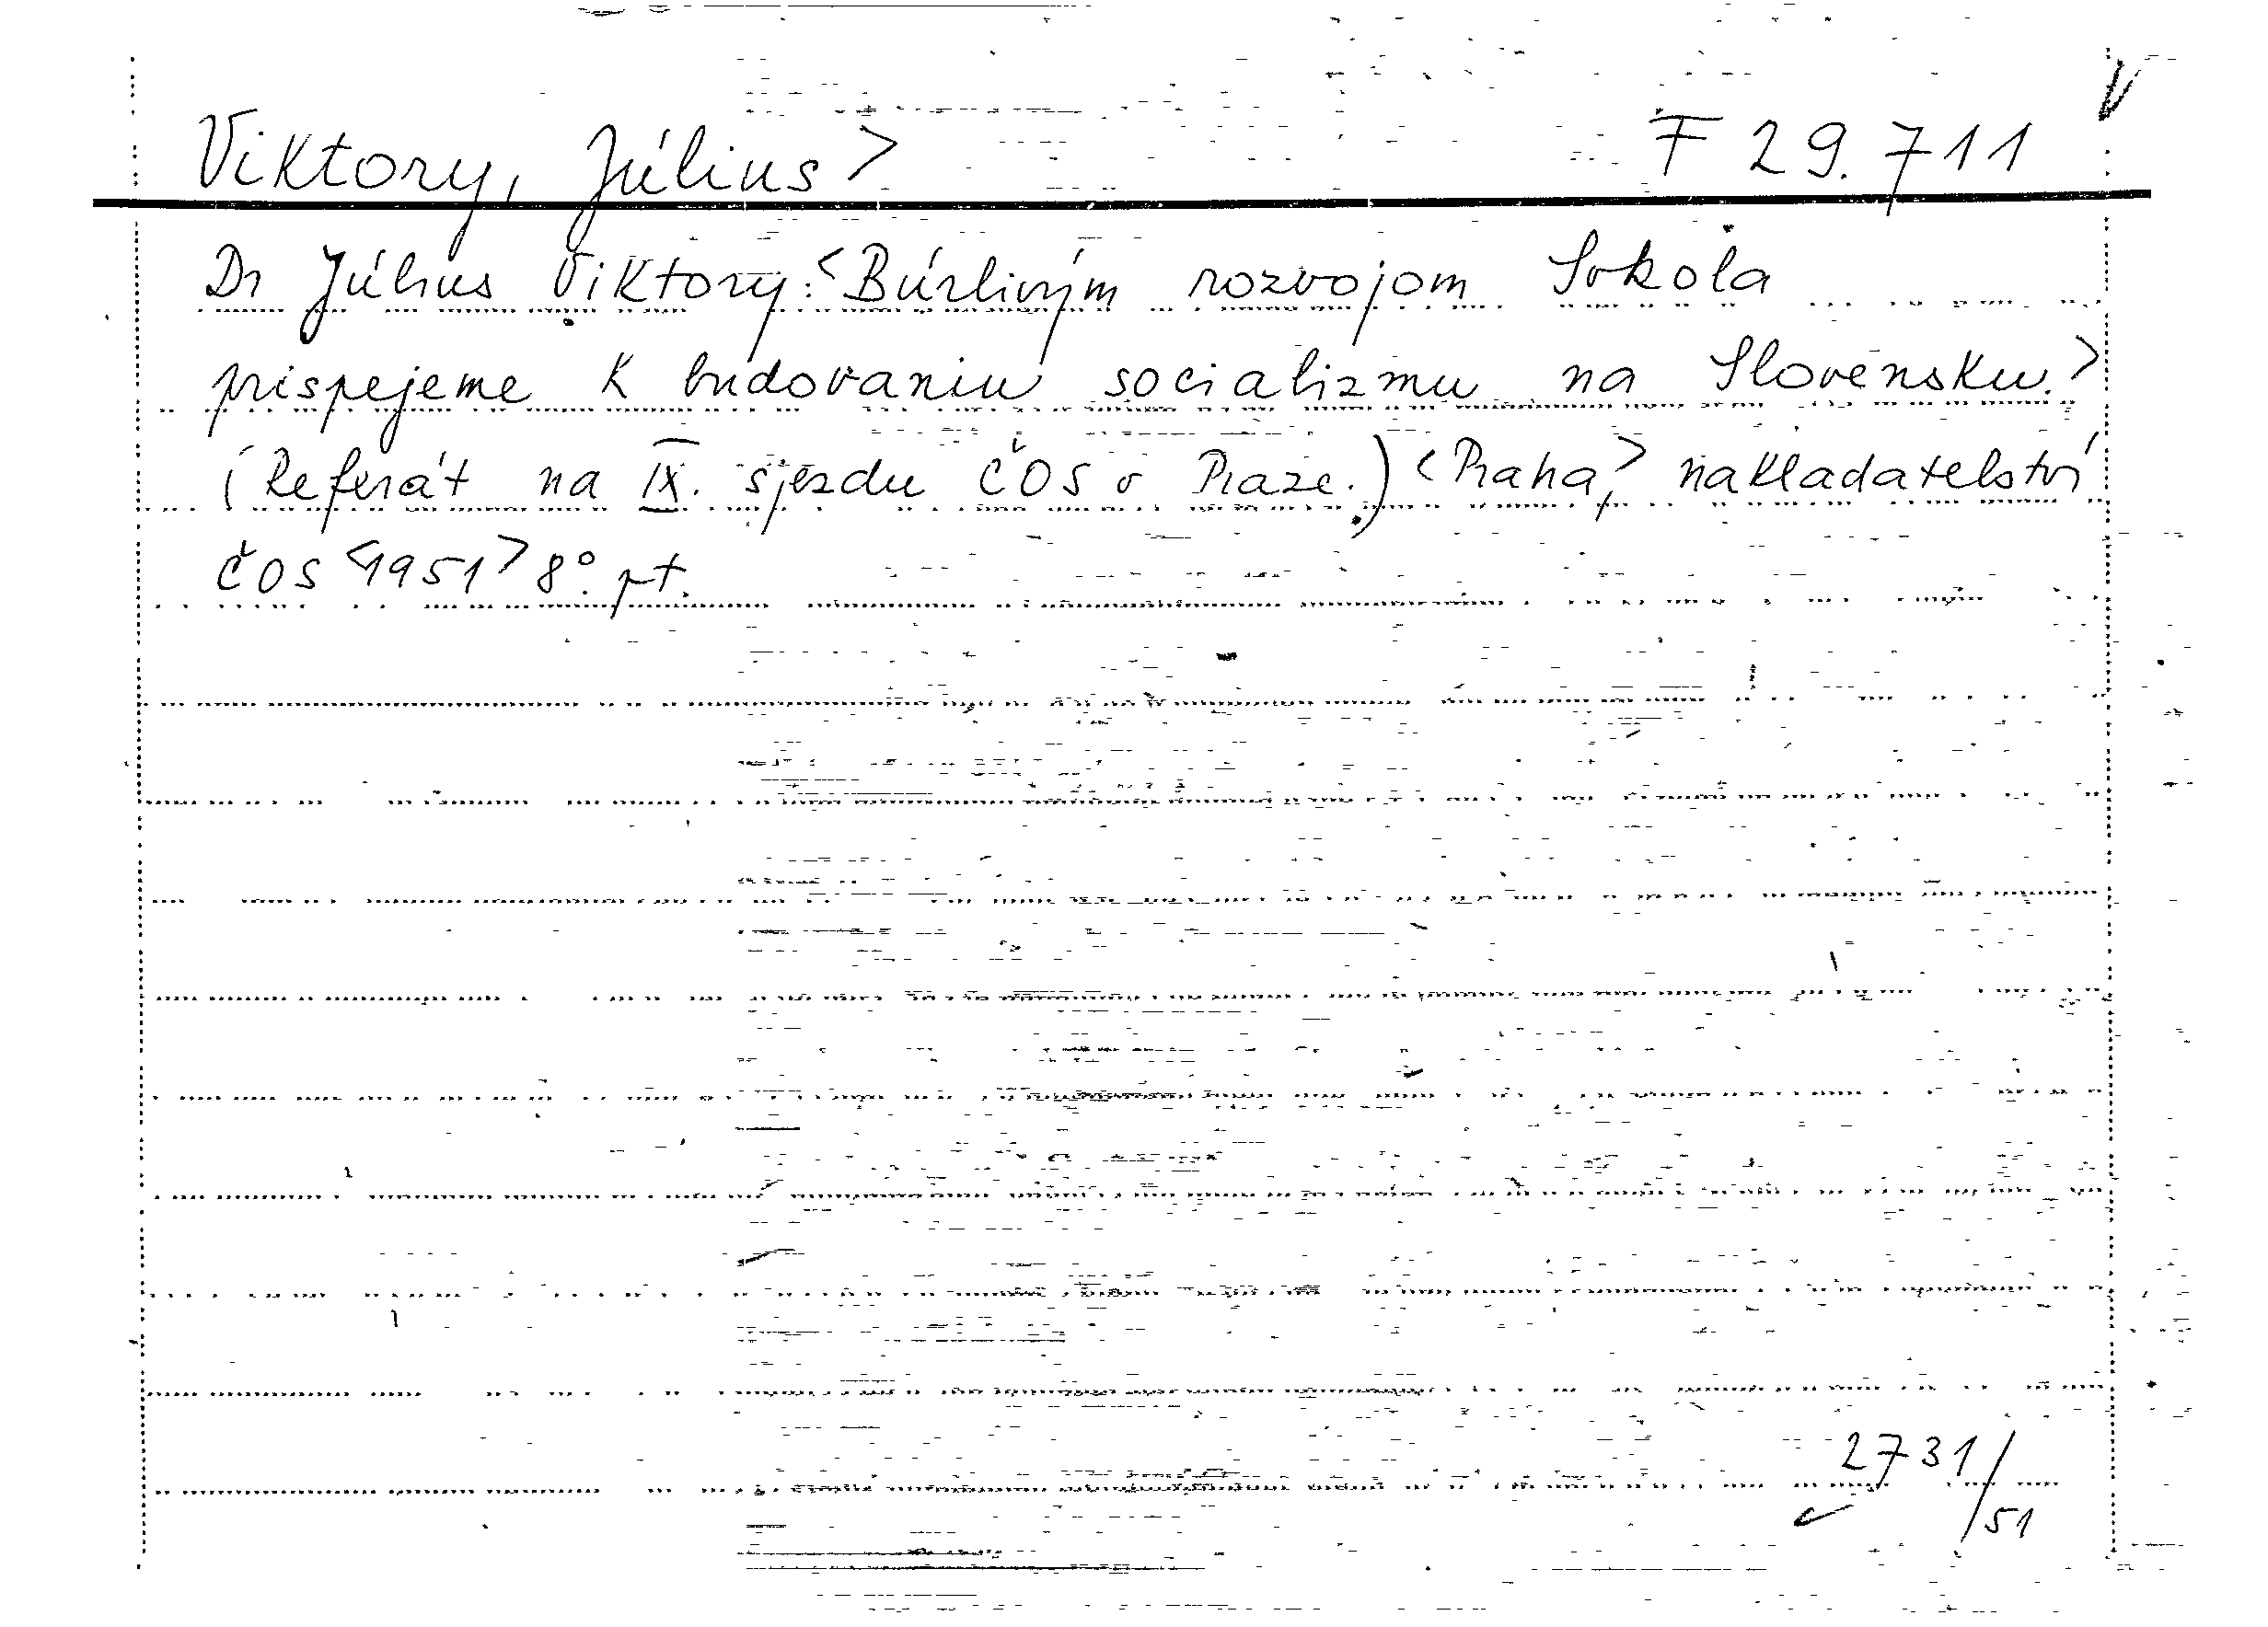 Viktory, Július> F 29.711
Dr Július Viktory: <Búrlivým rozvojom Sokola
prispejeme k budovaniu socializmu na Slovensku.>
(Referát na IX. sjezdu ČOS v Praze.) <Praha,> nakladatelství
ČOS <1951> 8°. pt.
2731/
/51